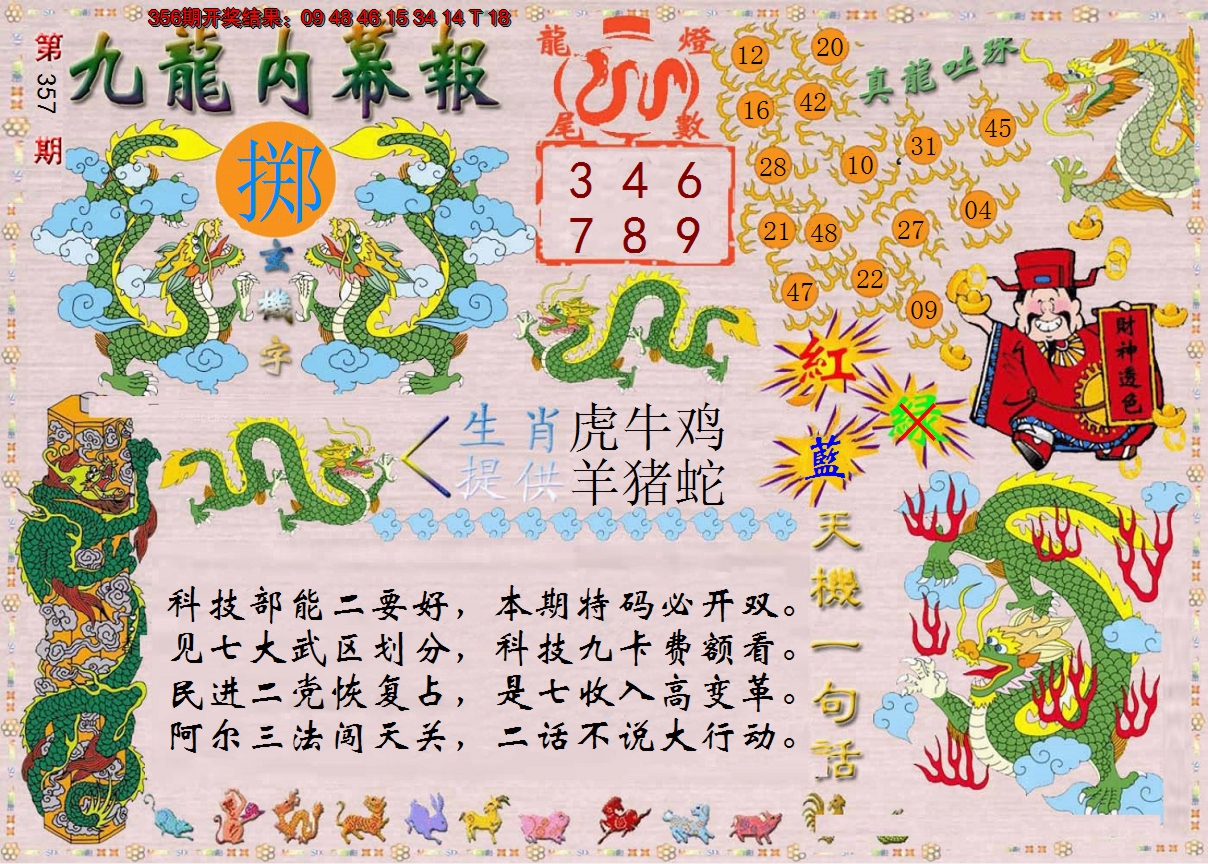 356期开奖结果：09 48 46 15 34 14 T 18
第357期
九龍内幕報
掷
玄機字
龍燈
尾數
3 4 6
7 8 9
真龍吐珠
12 20
16 42
28 10 31 45
21 48 27 04
47 22 09
財神透色
紅
绿
藍
生肖提供
虎牛鸡
羊猪蛇
天機一句話
科技部能二要好，本期特码必开双。
见七大武区划分，科技九卡费额看。
民进二党恢复占，是七收入高变革。
阿尔三法闯天关，二话不说大行动。